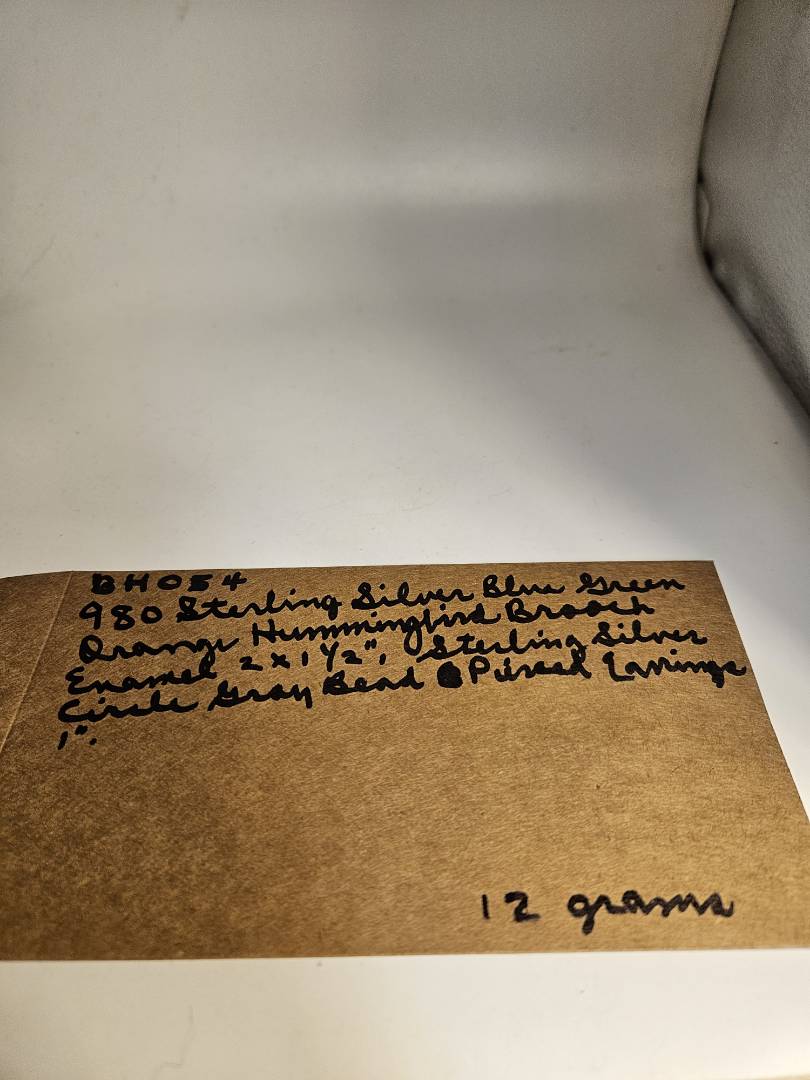 BH054
980 Sterling Silver Blue Green
Orange Hummingbird Brooch
Enamel 2 x 1 1/2", Sterling Silver
Circle Gray Bead Pierced Earrings
1".
12 grams